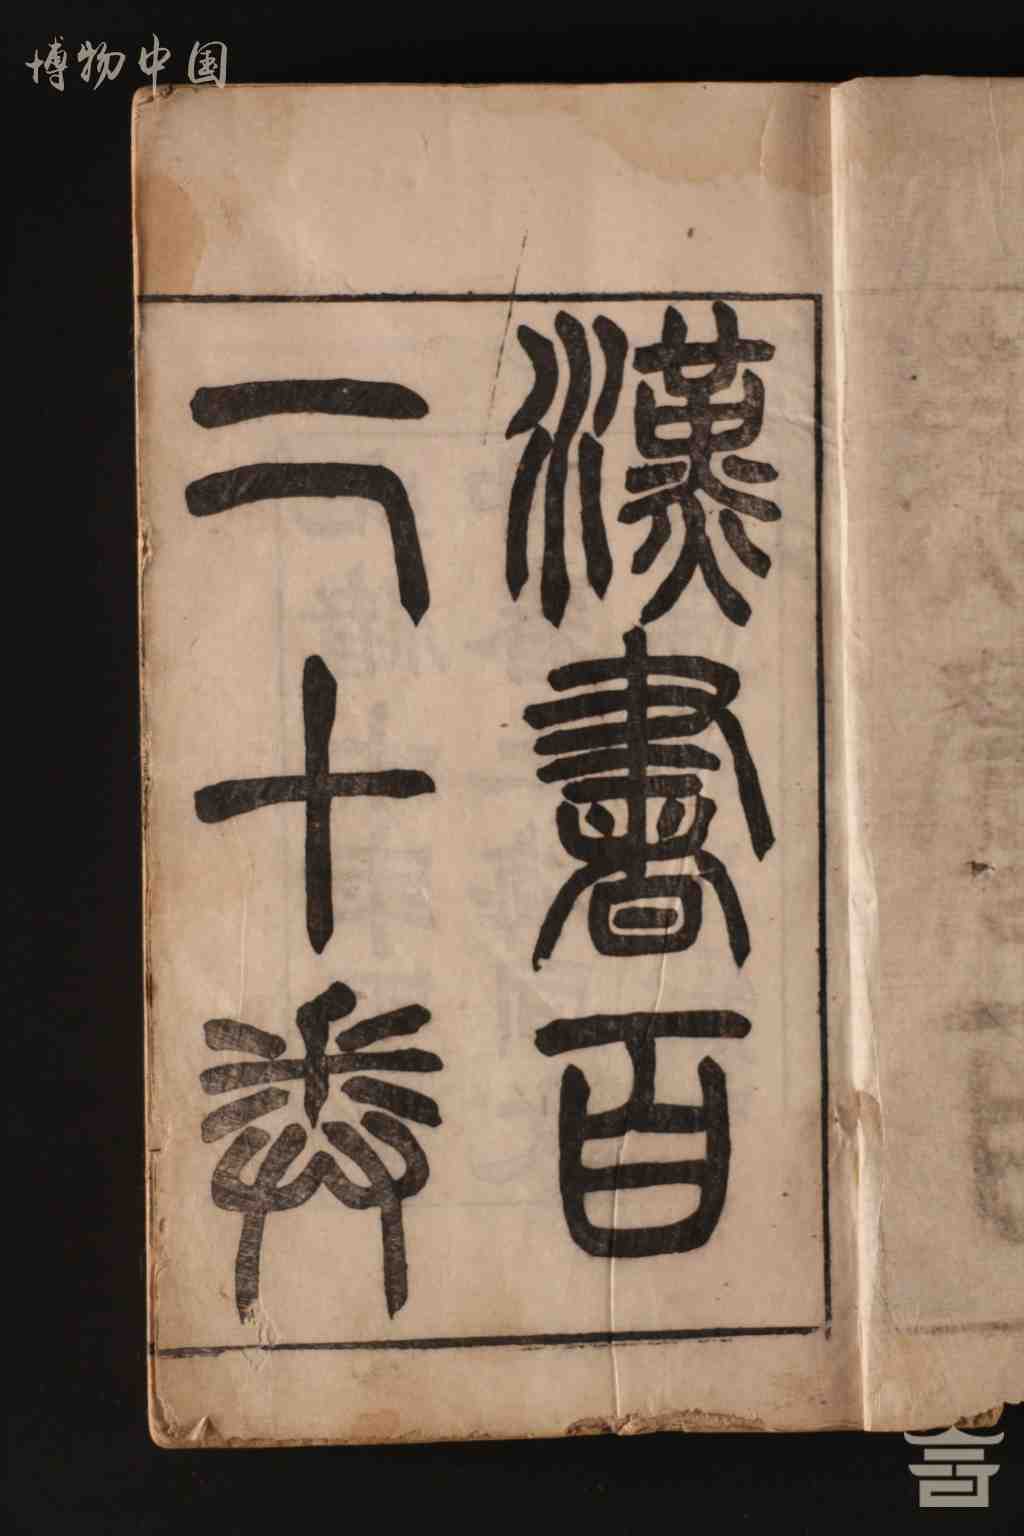 博物中国
漢書百
二十卷